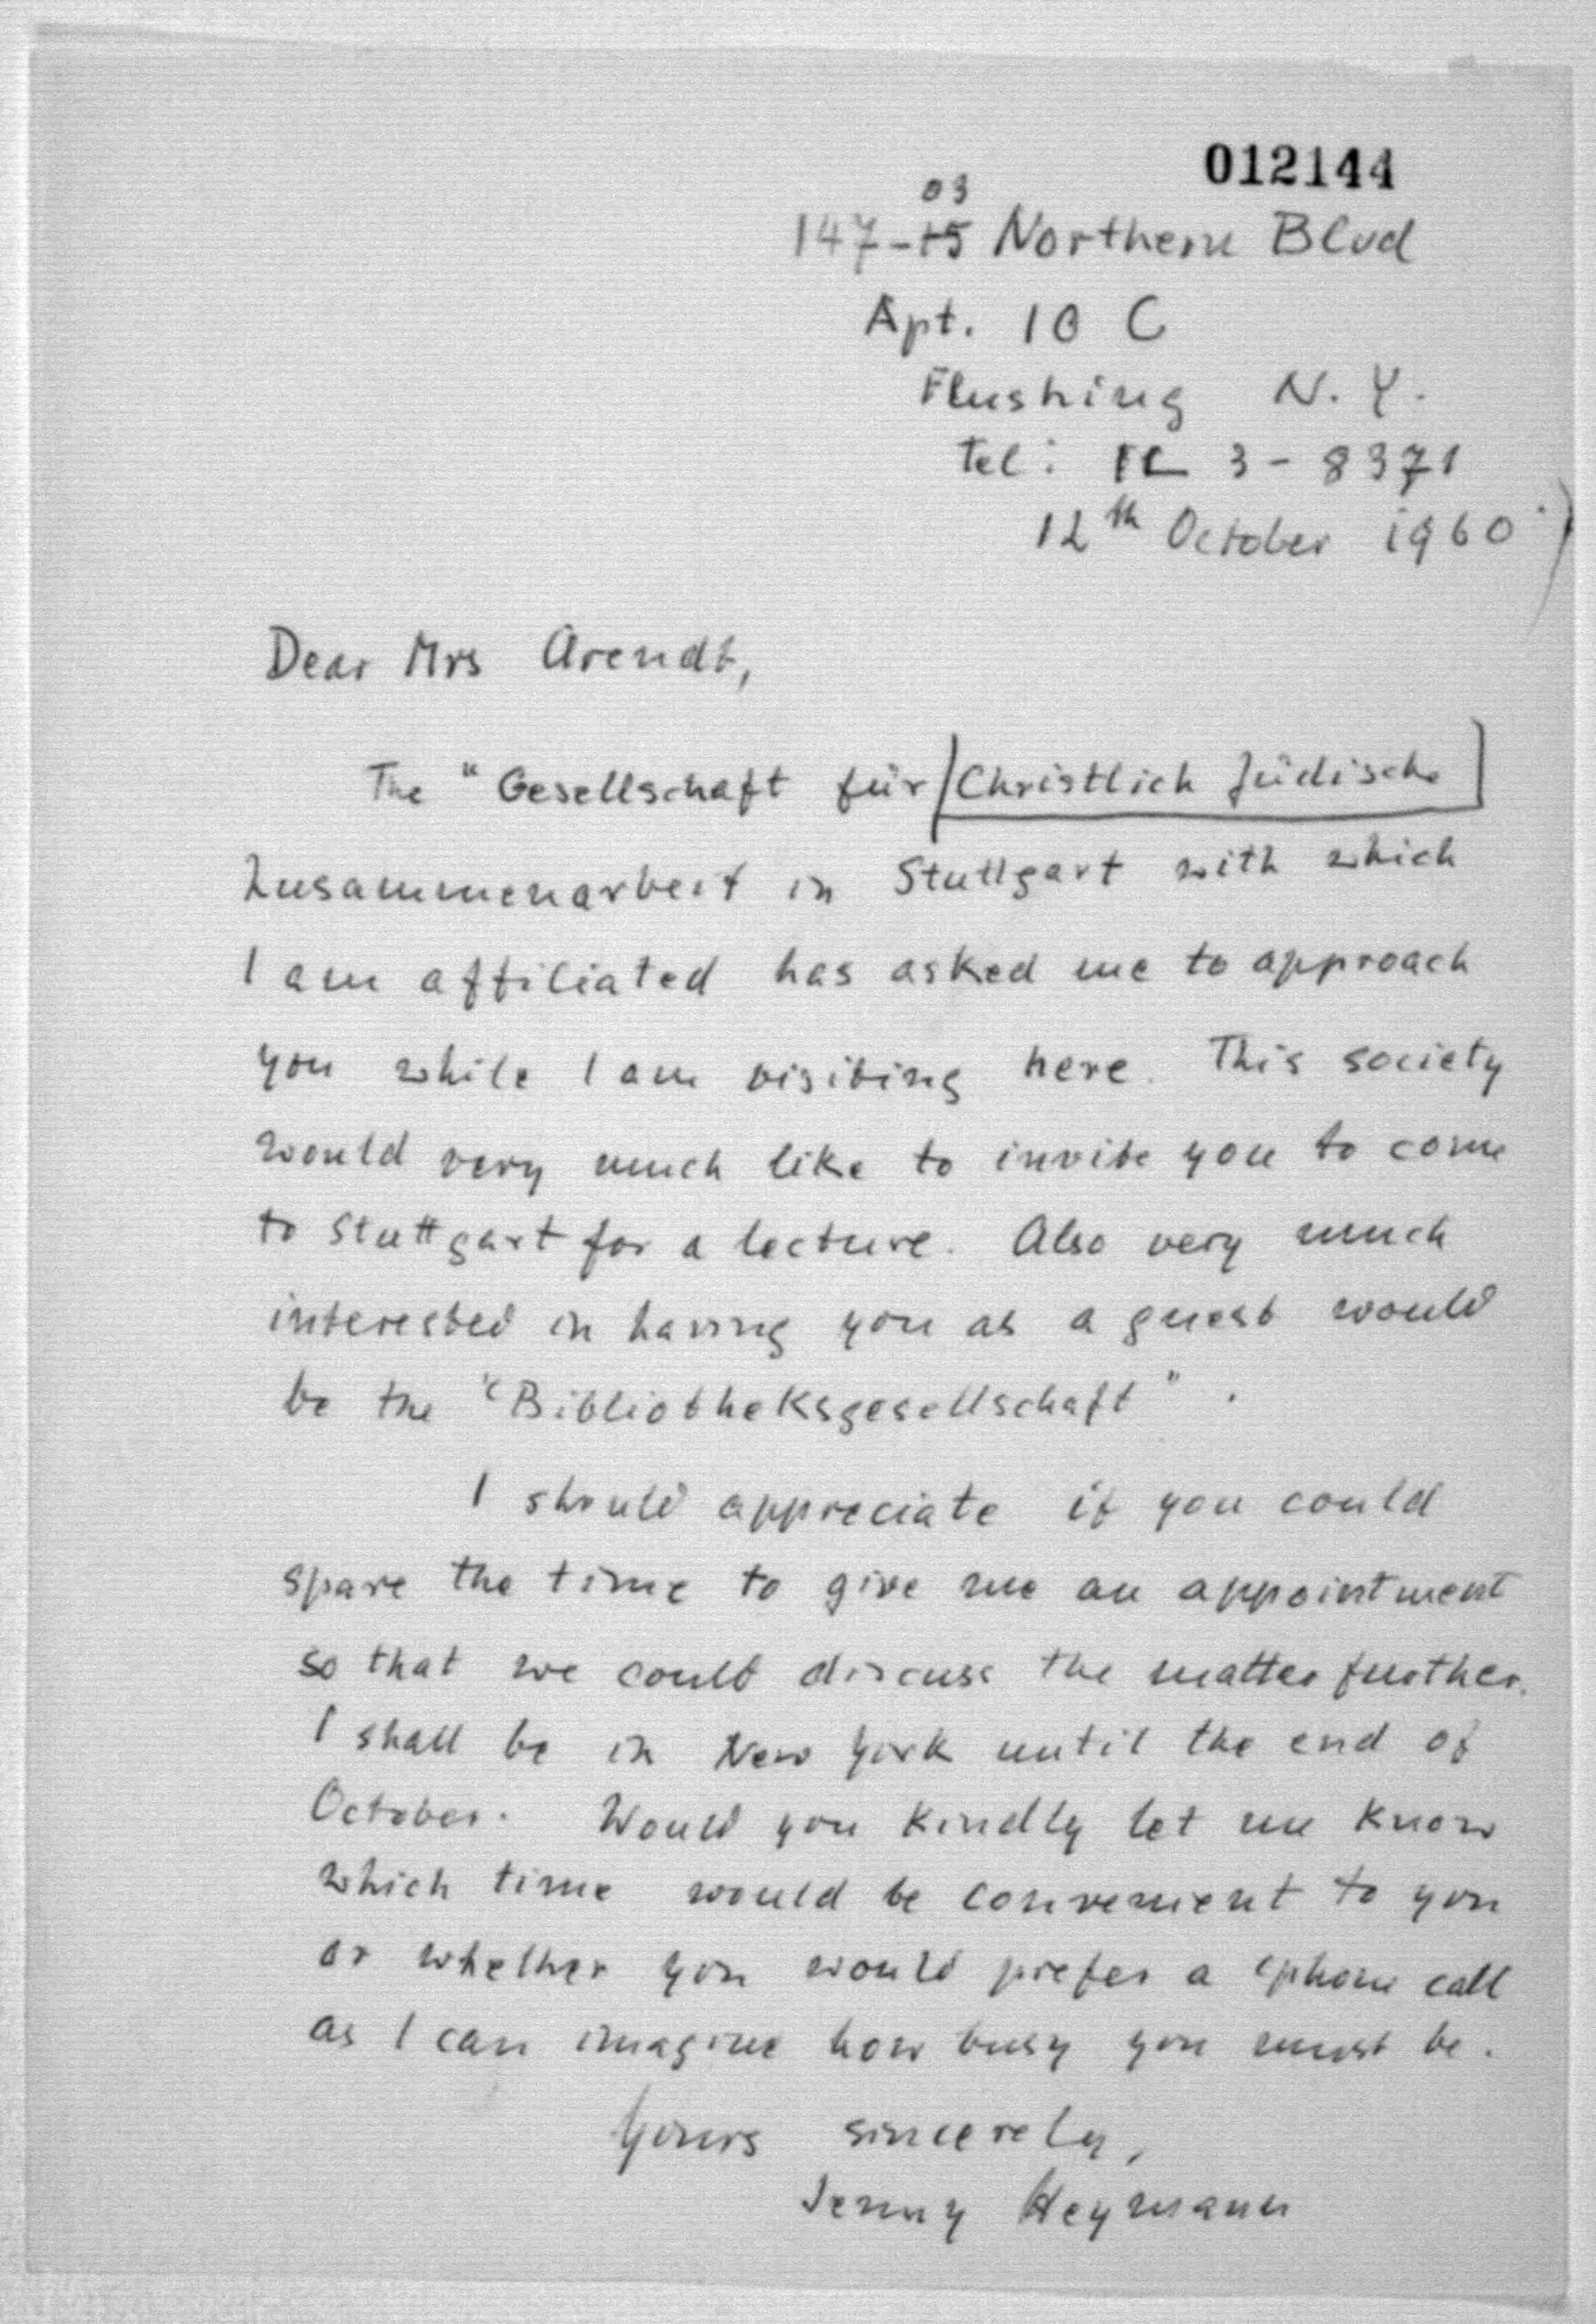 012144
03
147-15 Northern Blvd
Apt. 10 C
Flushing N. Y.
Tel: FL 3-8371
12th October 1960
Dear Mrs Arendt,
The "Gesellschaft für Christlich Jüdische
Zusammenarbeit in Stuttgart with which
I am affiliated has asked me to approach
you while I am visiting here. This society
would very much like to invite you to come
to Stuttgart for a lecture. Also very much
interested in having you as a guest would
be the "Bibliotheksgesellschaft".
I should appreciate if you could
spare the time to give me an appointment
so that we could discuss the matter further.
I shall be in New York until the end of
October. Would you kindly let me know
which time would be convenient to you
or whether you would prefer a 'phone call
as I can imagine how busy you must be.
Yours sincerely,
Jenny Heymann